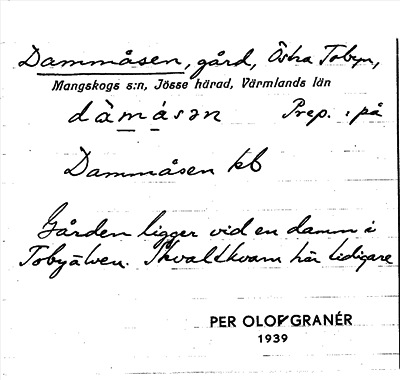 Dammåsen, gård, Östra Tobyn,
Mangskogs s:n, Jösse härad, Värmlands län
dàmásən Prep.: på
Dammåsen kb
Gården ligger vid en damm i
Tobyälven. Skvaltkvarn här tidigare
PER OLOF GRANÉR
1939